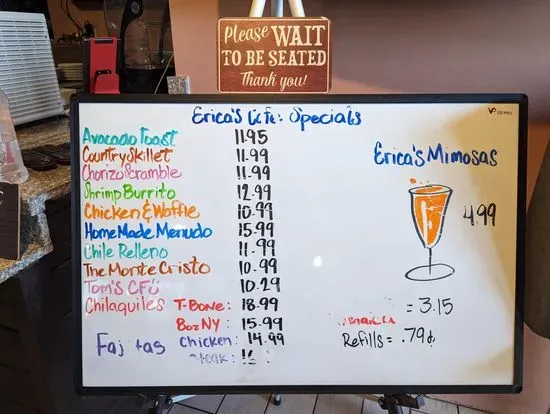 Please WAIT
TO BE SEATED
Thank you!
Erica's Cafe: Specials
Avocado Toast 11.95
Country Skillet 11.99
Chorizo Scramble 11.99
Shrimp Burrito 12.99
Chicken & Waffle 10.99
HomeMade Menudo 15.99
Chile Relleno 11.99
The Monte Cristo 10.99
Tom's CFS 10.29
Chilaquiles T-Bone: 18.99
8oz NY: 15.99
Faj tas Chicken: 14.99
teak:
Erica's Mimosas
4.99
= 3.15
Refills = .79¢